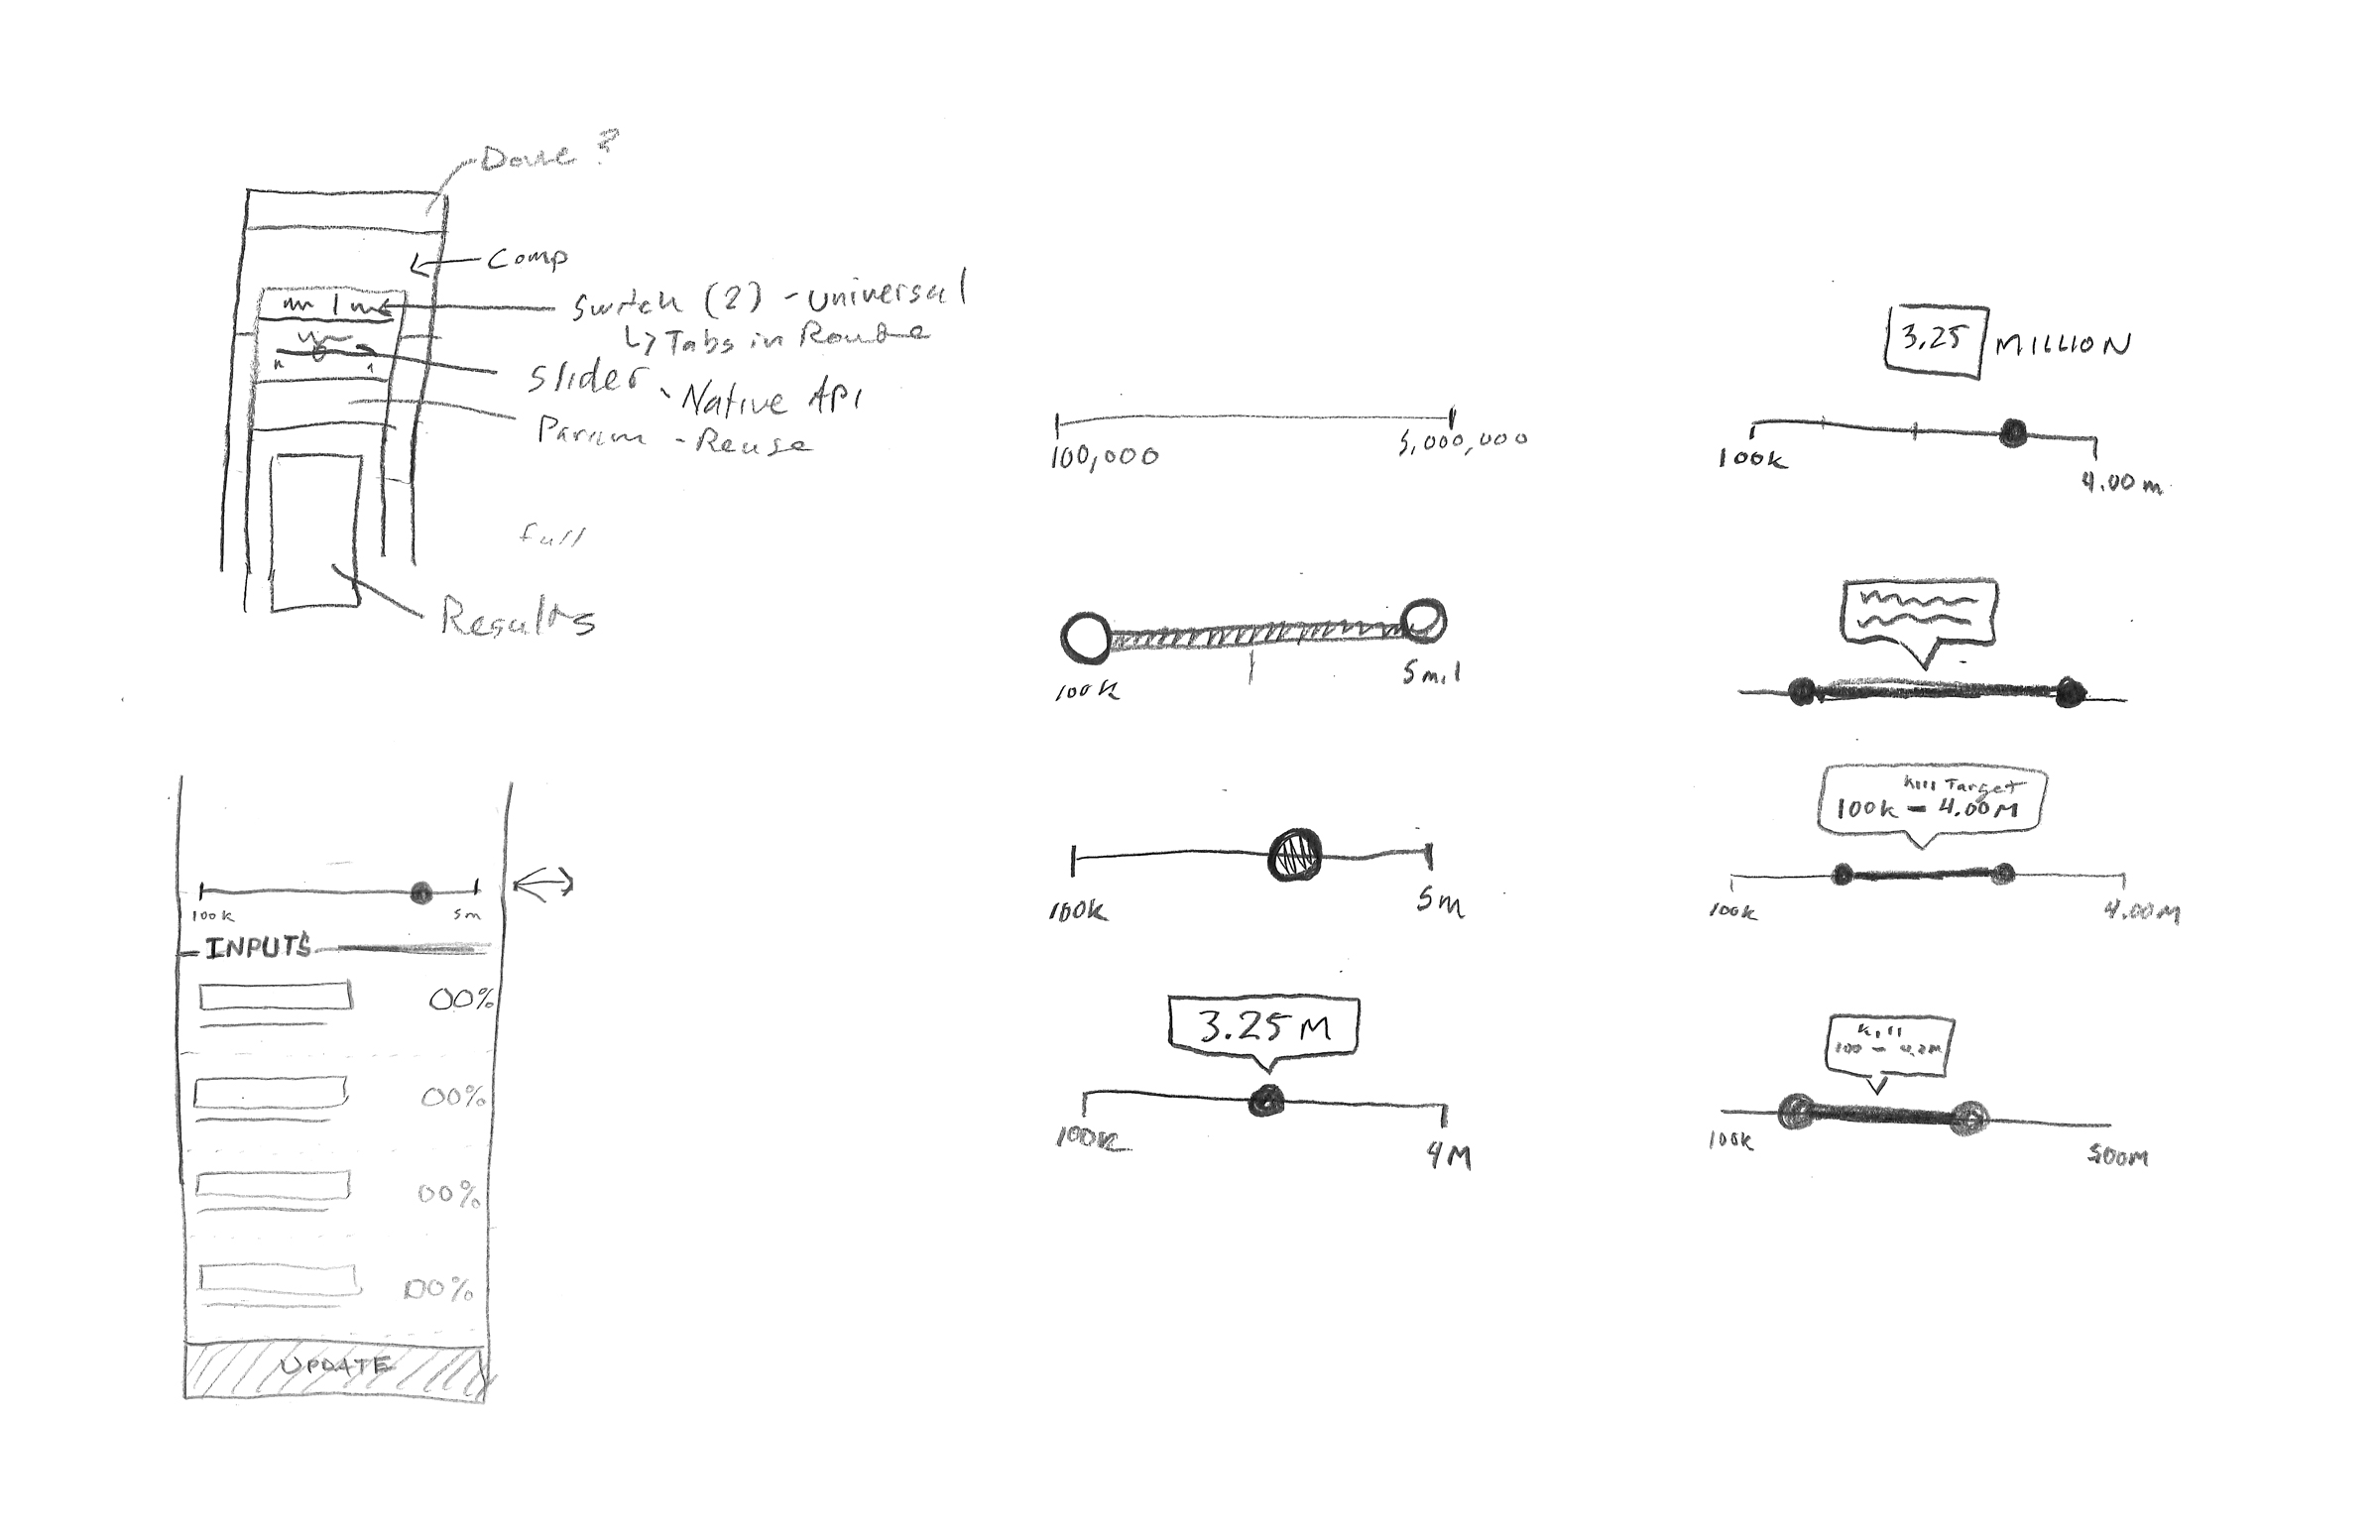 Done?
Comp
Switch (2) - Universal
↳ Tabs in Route
Slider - Native API
Param - Reuse
full
Results
100k
5m
INPUTS
00%
00%
00%
00%
UPDATE
100,000
5,000,000
100k
5mil
100k
5m
3.25M
100k
4M
3.25 MILLION
100k
4.00m
Kill Target
100k - 4.00M
100k
4.00M
Kill
100k
500M